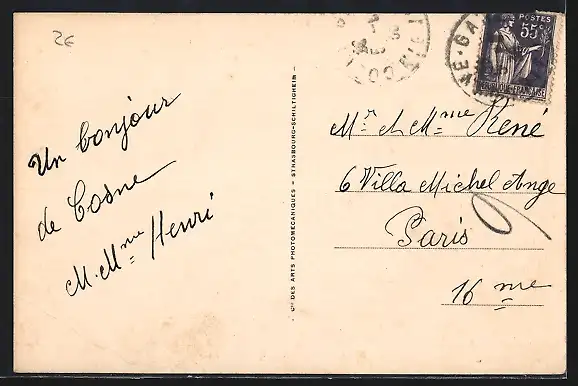 2€
Un bonjour
de Cosne
M. Mme Henri
Cie DES ARTS PHOTOMÉCANIQUES - STRASBOURG-SCHILTIGHEIM
POSTES
55c
Mr et Mme René
6 Villa Michel Ange
Paris
16 me